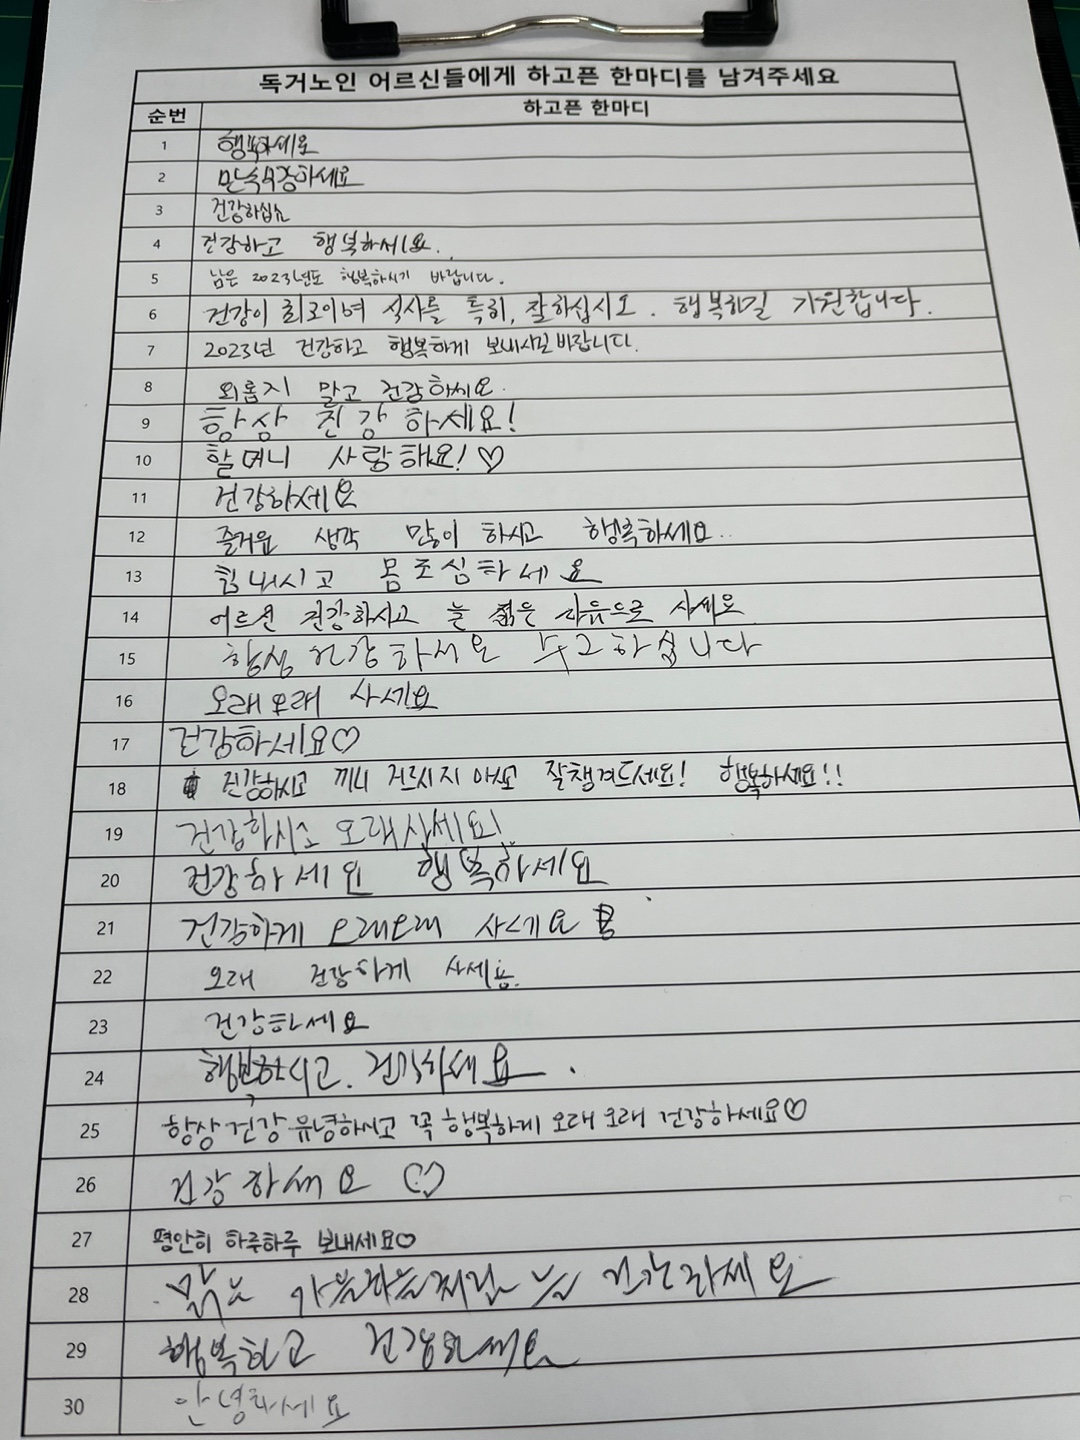 독거노인 어르신들에게 하고픈 한마디를 남겨주세요
순번 하고픈 한마디
1 행복하세요
2 만수무강하세요
3 건강하십쇼
4 건강하고 행복하세요.
5 남은 2023년도 행복하시기 바랍니다.
6 건강이 최고이며 식사를 특히, 잘하십시오. 행복하길 기원합니다.
7 2023년 건강하고 행복하게 보내시길 바랍니다.
8 외롭지 말고 건강하세요.
9 항상 건강하세요!
10 할머니 사랑해요! ♡
11 건강하세요
12 즐거운 생각 많이 하시고 행복하세요..
13 힘내시고 몸조심하세요
14 어르신 건강하시고 늘 젊은 마음으로 사세요
15 항상 건강하세요
16 오래오래 사세요
17 건강하세요♡
18 건강하시고 끼니 거르시지 마시고 잘챙겨드세요! 행복하세요!!
19 건강하시고 오래사세요!
20 건강하세요 행복하세요
21 건강하게 오래오래 사세요
22 오래 건강하게 사세용.
23 건강하세요
24 행복하시고. 건강하세요.
25 항상 건강 유념하시고 꼭 행복하게 오래오래 건강하세요♡
26 건강하세요 ♡
27 평안히 하루하루 보내세요♡
28 맑은 가을하늘처럼 늘 건강하세요
29 행복하고 건강하세요
30 안녕하세요